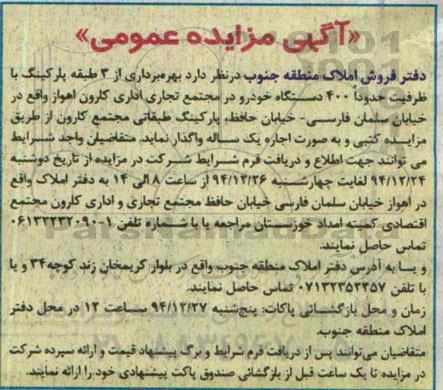 «آگهی مزایده عمومی»
دفتر فروش املاک منطقه جنوب درنظر دارد بهره‌برداری از ۳ طبقه پارکینگ با
ظرفیت حدوداً ۴۰۰ دستگاه خودرو در مجتمع تجاری اداری کارون اهواز واقع در
خیابان سلمان فارسی- خیابان حافظ، پارکینگ طبقاتی مجتمع کارون از طریق
مزایده کتبی و به صورت اجاره یک ساله واگذار نماید. متقاضیان واجد شرایط
می توانند جهت اطلاع و دریافت فرم شرایط شرکت در مزایده از تاریخ دوشنبه
۹۴/۱۲/۲۴ لغایت چهارشنبه ۹۴/۱۲/۲۶ از ساعت ۸ الی ۱۴ به دفتر املاک واقع
در اهواز خیابان سلمان فارسی خیابان حافظ مجتمع تجاری و اداری کارون مجتمع
اقتصادی کمیته امداد خوزستان مراجعه یا با شماره تلفن ۱-۰۶۱۳۲۲۳۲۰۹۰
تماس حاصل نمایند.
و یا به آدرس دفتر املاک منطقه جنوب واقع در بلوار کریمخان زند کوچه۳۴ و یا
با تلفن ۰۷۱۳۲۳۵۲۳۵۷ تماس حاصل نمایند.
زمان و محل بازگشائی پاکات: پنج‌شنبه ۹۴/۱۲/۲۷ ساعت ۱۲ در محل دفتر
املاک منطقه جنوب.
متقاضیان می‌توانند پس از دریافت فرم شرایط و برگ پیشنهاد قیمت و ارائه سپرده شرکت
در مزایده تا یک ساعت قبل از بازگشائی صندوق پاکت پیشنهادی خود را ارائه نمایند.